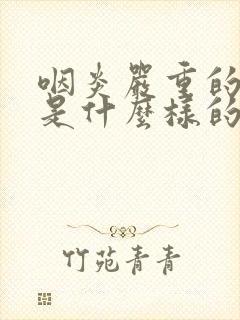 咽炎嚴重的
是什麼樣的
竹苑青青